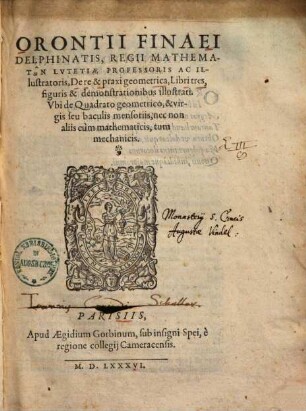 ORONTII FINAEI
DELPHINATIS, REGII MATHEMA-
TωN LVTETIÆ, PROFESSORIS AC IL-
lustratoris, De re & praxi geometrica, Libri tres,
figuris & demonstrationibus illustrati.
Vbi de Quadrato geometrico, & vir-
gis seu baculis mensoriis, nec non
aliis cùm mathematicis, tum
mechanicis.
Monasterij S. Crucis
Augustæ Vindel.
PARISIIS,
Apud Ægidium Gorbinum, sub insigni Spei, è
regione collegij Cameracensis.
M. D. LXXXVI.